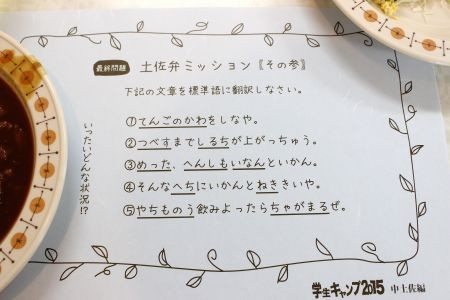 最終問題 土佐弁ミッション『その参』
下記の文章を標準語に翻訳しなさい。
①てんごのかわをしなや。
②つべすまでしるちが上がっちゅう。
③めった、へんしもいなんといかん。
④そんなへちにいかんとねききいや。
⑤やちものう飲みよったらちゃがまるぜ。
いったいどんな状況!?
学生キャンプ2015 中土佐編